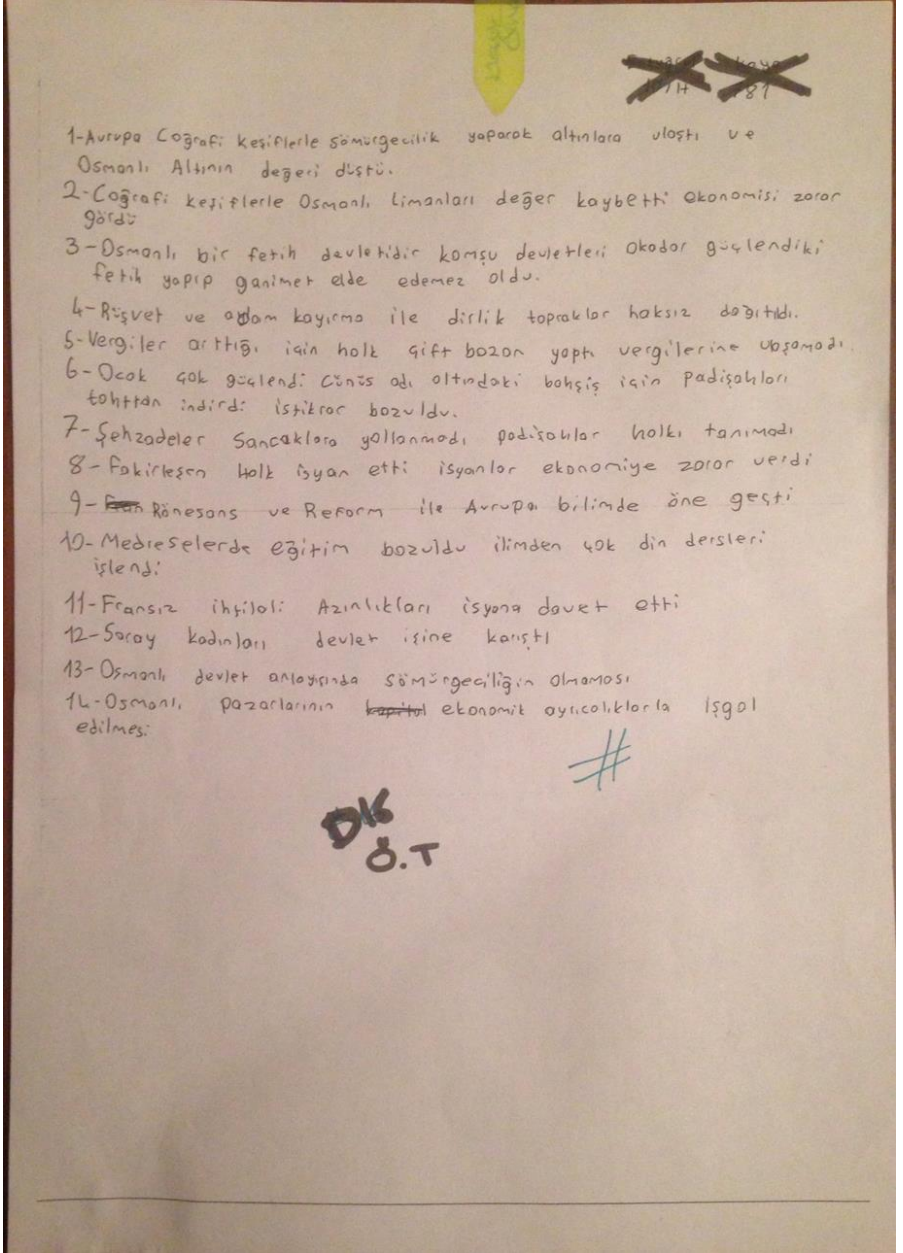 1-Avrupa Coğrafi keşiflerle sömürgecilik yaparak altınlara ulaştı ve
Osmanlı Altının değeri düştü.
2-Coğrafi keşiflerle Osmanlı Limanları değer kaybetti ekonomisi zarar
gördü
3-Osmanlı bir fetih devletidir komşu devletleri okadar güçlendiki
fetih yapıp ganimet elde edemez oldu.
4-Rüşvet ve adam kayırma ile dirlik topraklar haksız dağıtıldı.
5-Vergiler arttığı için halk çift bozan yaptı vergilerine
6-Ocak çok güçlendi Cünüs adı altındaki bahşiş için Padişahları
tahttan indirdi istikrar bozuldu.
7-Şehzadeler Sancaklara yollanmadı padişahlar halkı tanımadı
8-Fakirleşen Halk isyan etti isyanlar ekonomiye zarar verdi
9-Rönesans ve Reform ile Avrupa bilimde öne geçti
10-Medreselerde eğitim bozuldu ilimden çok din dersleri
işlendi
11-Fransız ihtilali Azınlıkları isyana davet etti
12-Saray kadınları devlet işine karıştı
13-Osmanlı devlet anlayışında sömürgeciliğin olmaması
14-Osmanlı pazarlarının ekonomik ayrıcalıklarla işgal
edilmesi
#
DK
Ö.T